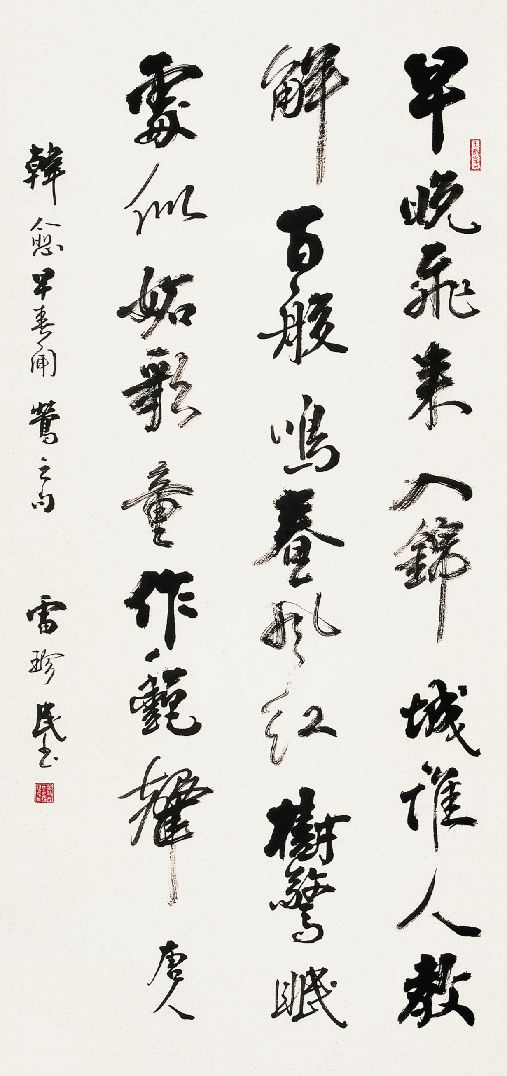 早晚飛来入錦城誰人教
解百般鳴春風紅樹驚眠
處似妬歌童作艷聲 唐人
韓愈早春聞鶯之句 雷珍民书